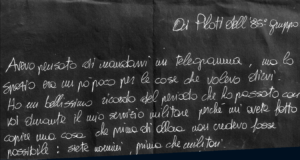 Ai Piloti dell'85° gruppo
Avevo pensato di mandarvi un telegramma, ma lo
spazio era un po' poco per le cose che volevo dirvi.
Ho un bellissimo ricordo del periodo che ho passato con
voi durante il mio servizio militare perché mi avete fatto
capire una cosa che prima di allora non credevo fosse
possibile: siete uomini, prima che militari.